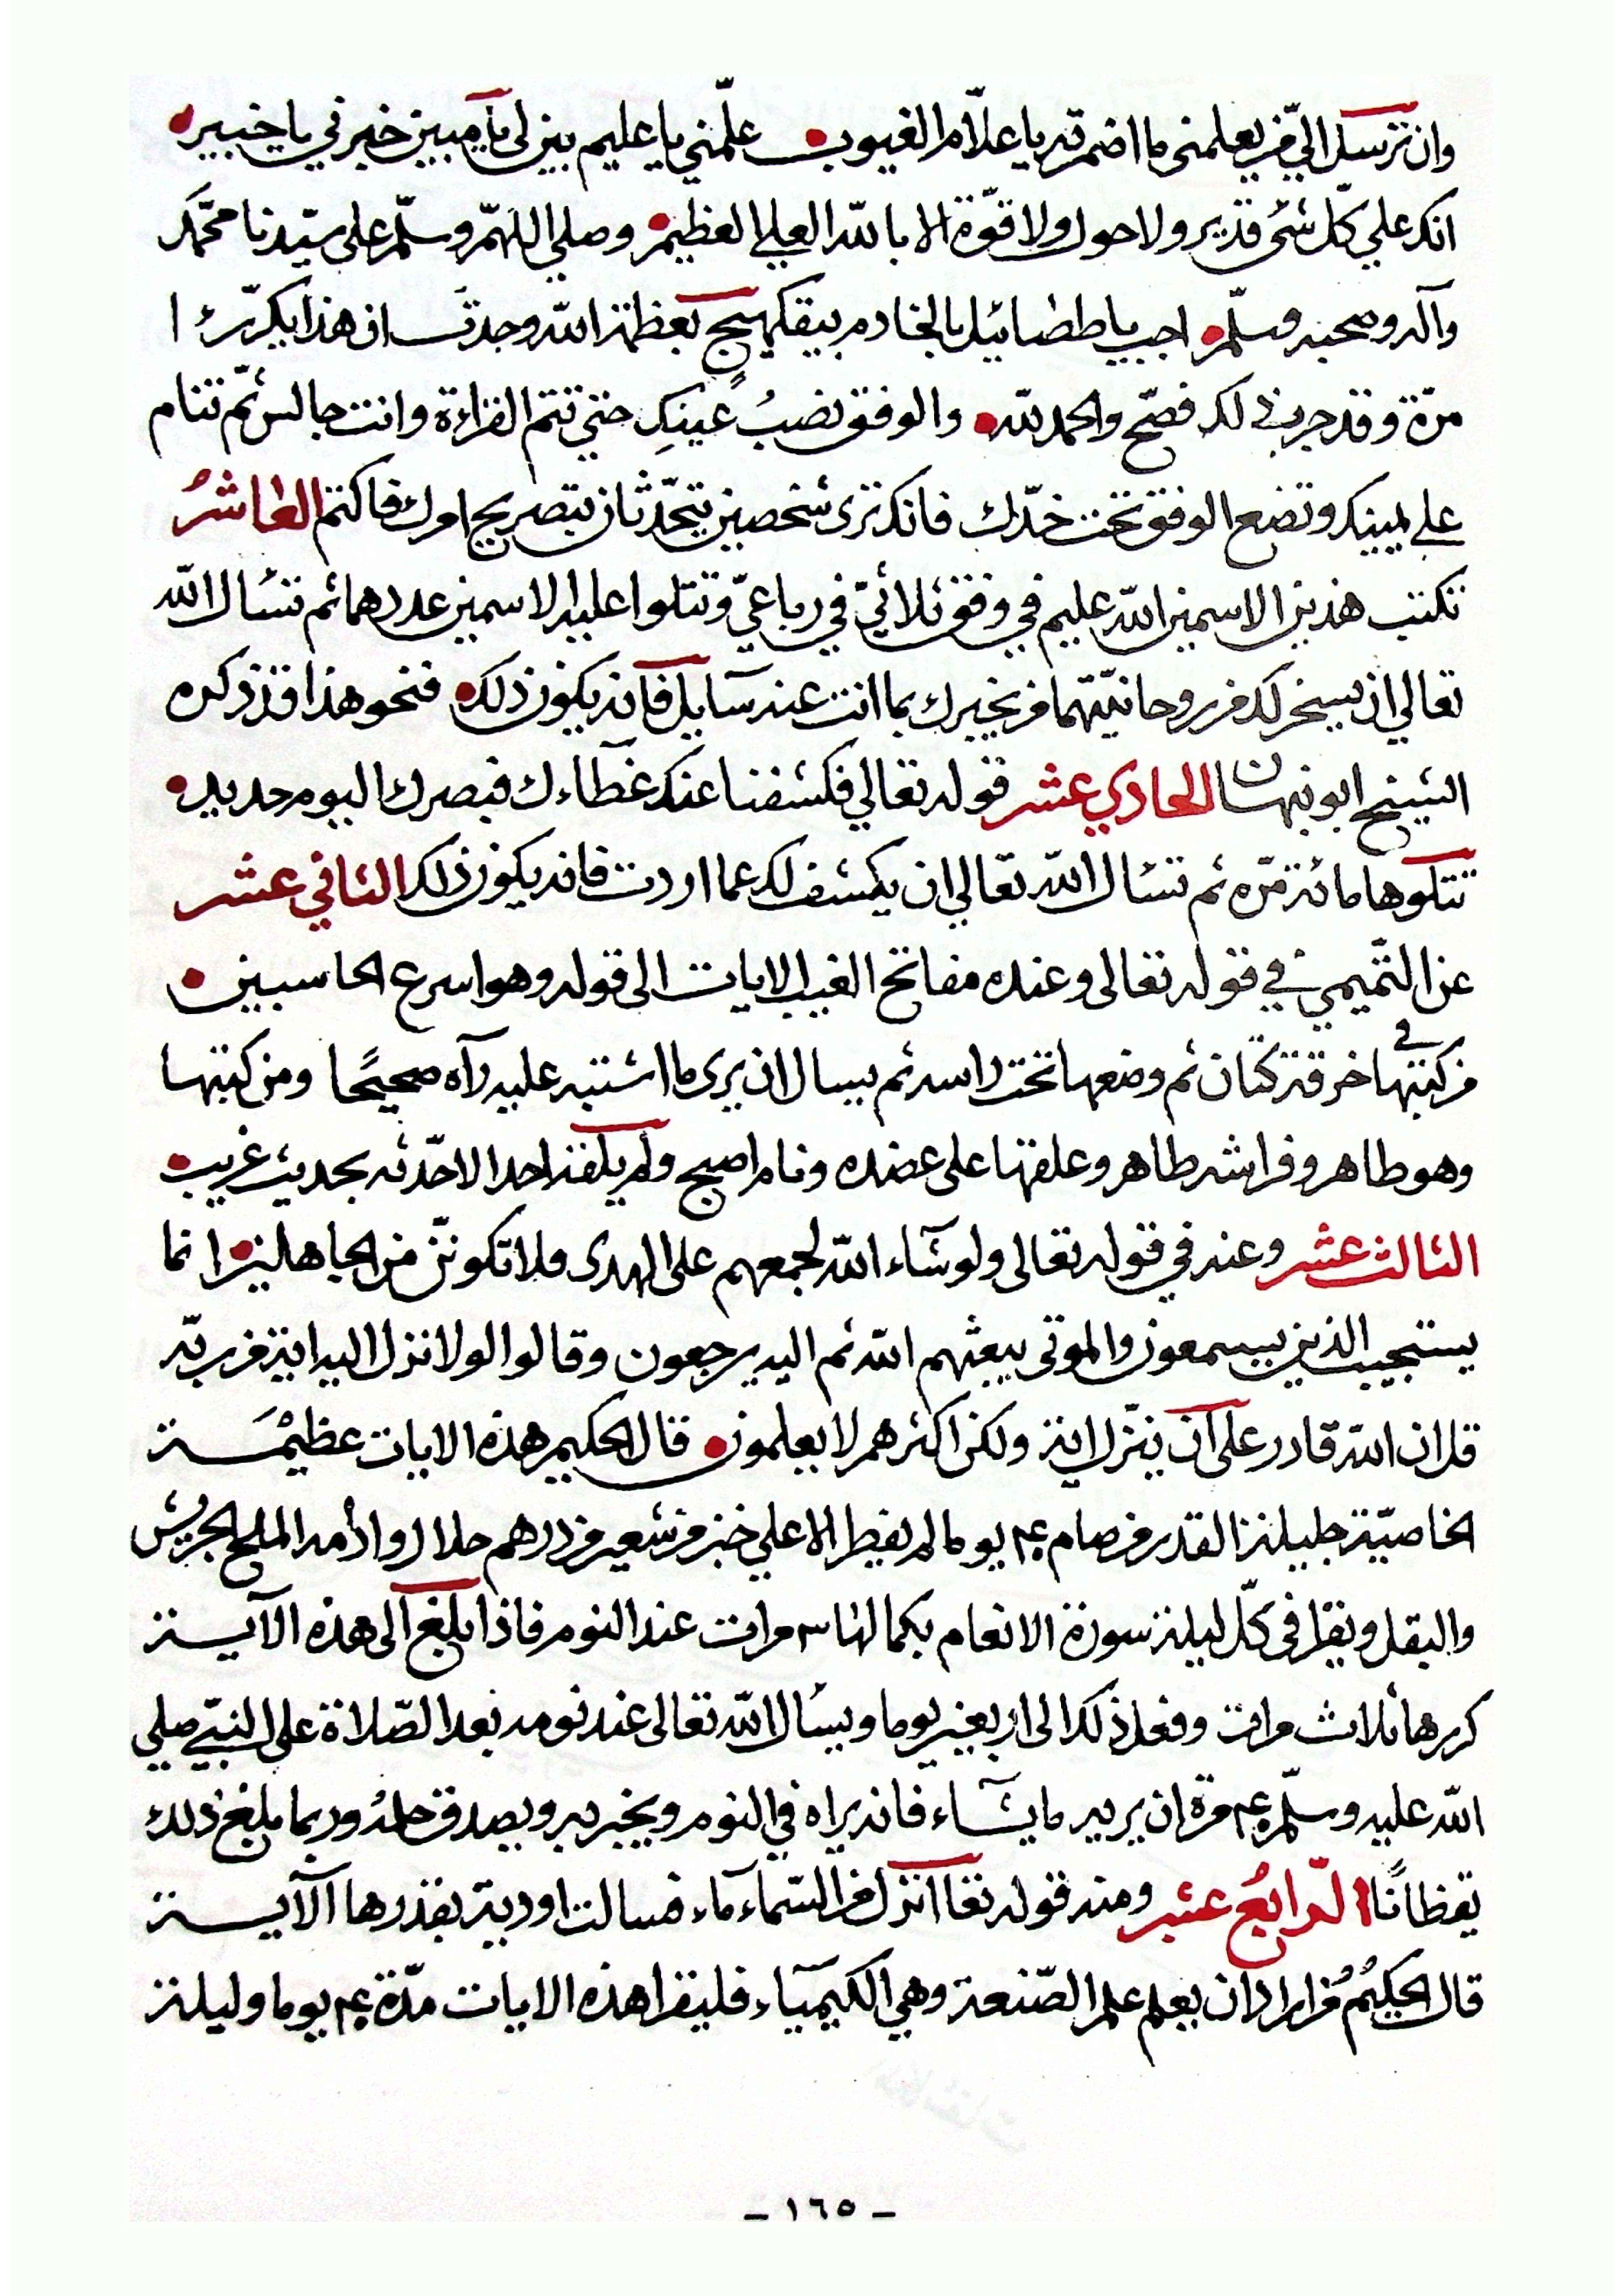 وان ترسل اليّ من يعلمني ما اضمرته يا علّام الغيوب علّمني يا عليم بين لي يا مبين خبرني يا خبير
انك علي كلّ شئ قدير ولا حول ولا قوّة الا بالله العلي العظيم وصلي اللهمّ وسلّم على سيّدنا محمّد
وآله وصحبه وسلّم اجب يا طططائيل بالخادم بعظمة الله وجدت ان هذا يكرّر ١
مرّة وقد جرب ذلك فصّح والحمد لله والوفق نصبُ عينك حتي تتم القراءة وانت جالس ثمّ تنام
علي يمينك وتضع الوفق تحت خدّك فانك ترى شخصين يتحّدثان بتصريح امرك فاكتم العاشرُ
تكتب هذين الاسمين الله عليم في وفق ثلاثيّ في رباعيّ وتتلوا عليه الاسمين عددهما ثم تسٔال الله
تعالي ان يسخر لك من روحانيّتهما من يخبرك بما انت عنه سآيل فانه يكون ذلك فنحو هذا قد ذكره
الشيخ ابو نبهان الحادي عشر قوله تعالي فكشفنا عنك غطآءك فبصرك اليوم حديد
تتلوها مائة مرّه ثم تسٔال الله تعالي ان يكشف لك عما اردت فانه يكون ذلك الثاني عشر
عن التّميمي في قوله تعالى وعنده مفاتح الغيب الايات الى قوله وهو اسرع الحاسبين
من كتبها في خرقة كتّان ثم وضعها تحت راسه ثم يسال ان يرى ما اشتبه عليه رآه صحيحًا ومن كتبها
وهو طاهر وفراشه طاهر وعلقها على عضده ونام اصبح ولم يلقه احد الا حدّثه بحديث غريب
الثالث عشر وعنه في قوله تعالى ولو شآء الله لجمعهم على الهدى فلا تكوننّ من الجاهلين انما
يستجيب الذين يسمعون والموتى يبعثهم الله ثم اليه يرجعون وقالوا لولا نزل اليه اية من ربّه
قل ان الله قادر على ان ينزّل اية ولكن اكثرهم لا يعلمون قال الحكيم هذه الايات عظيمة
الخاصيّة جليلة القدر من صام ٤٠ يوما لم يفطر الا علي خبز من شعير من درهم حلال وادٔمه الملح الجريش
والبقل ويقرٔا في كلّ ليلة سورة الانعام بكمالها ٣ مرات عند النوم فاذا بلغ الى هذه الآية
كررها ثلاث مرات وفعل ذلك الى اربعين يوما ويسٔال الله تعالى عند نومه بعد الصّلاة على النبيّ صلي
الله عليه وسلّم ٤٠ مرة ان يريه ما يشآء فانه يراه في النوم ويخبر به ويصدق حلمُه وربما بلغ ذلك
يقظانًا الرّابعُ عشر ومنه قوله تعا انزل من السّمآء مآء فسالت اودية بقدرها الآية
قال الحكيمُ من اراد ان يعلم علم الصّنعة وهي الكيميآء فليقرا هذه الايات مدّة ٤٠ يوما وليلة
- ١٦٥ -